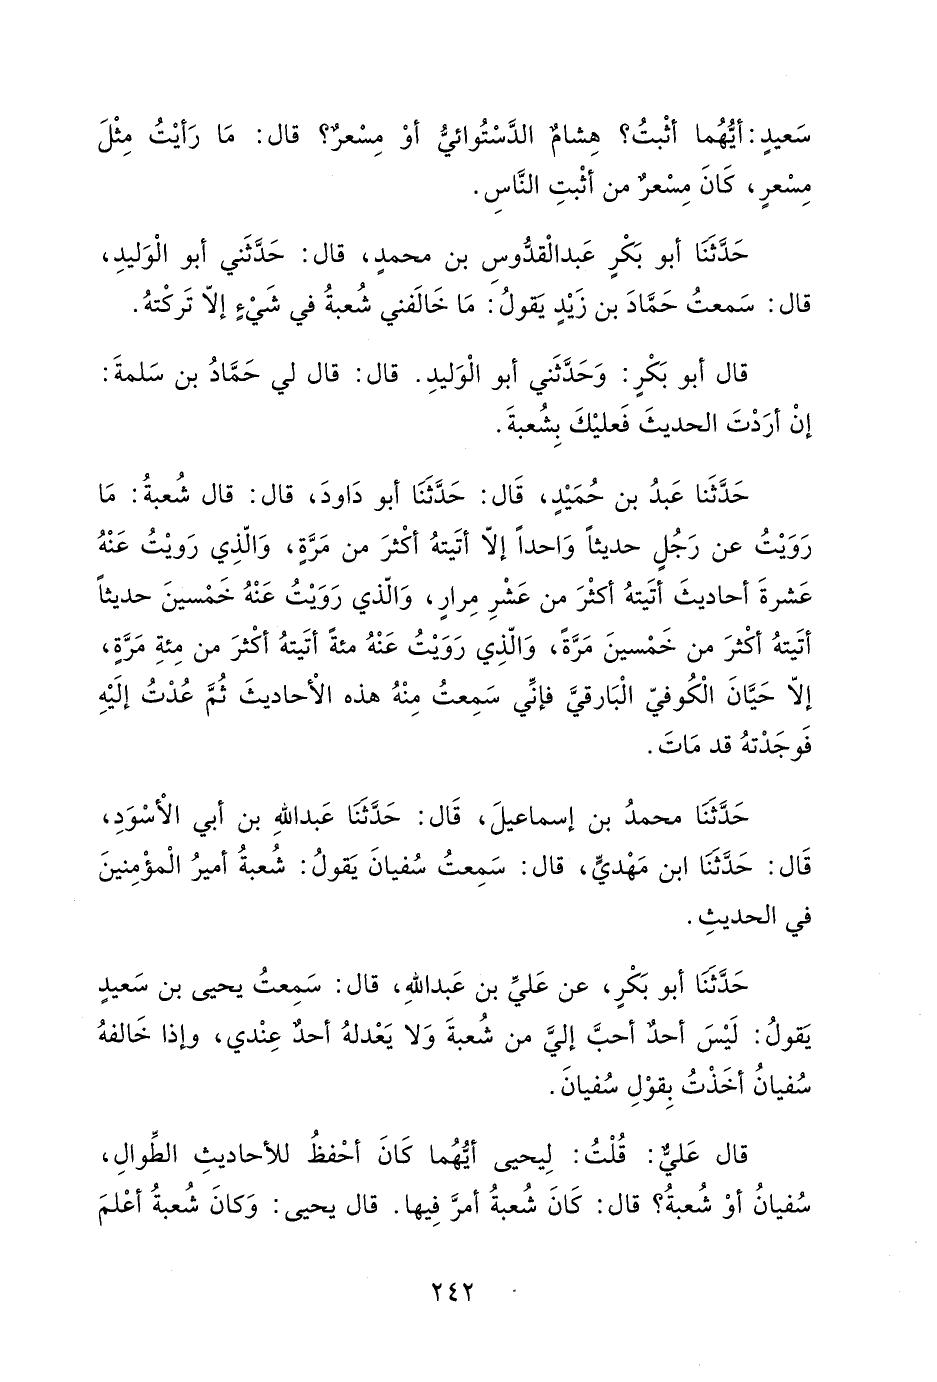 سَعيدٍ: أيُّهُما أثْبتُ؟ هِشامٌ الدَّسْتُوائيُّ أوْ مِسْعرٌ؟ قال: مَا رَأيْتُ مِثْلَ
مِسْعرٍ، كَانَ مِسْعرٌ من أثْبتِ النَّاسِ.
حَدَّثَنَا أبو بَكْرٍ عَبدالْقدُّوسِ بن محمدٍ، قال: حَدَّثَني أبو الْوَليدِ،
قال: سَمعتُ حَمَّادَ بن زَيْدٍ يَقولُ: مَا خَالَفني شُعبةُ في شَيْءٍ إلاّ تَركْتهُ.
قال أبو بَكْرٍ: وَحَدَّثَني أبو الْوَليدِ. قال: قال لي حَمَّادُ بن سَلمةَ:
إنْ أرَدْتَ الحديثَ فَعليْكَ بِشُعبةَ.
حَدَّثَنا عَبدُ بن حُمَيْدٍ، قَال: حَدَّثَنَا أبو دَاودَ، قال: قال شُعبةُ: مَا
رَوَيْتُ عن رَجُلٍ حديثاً وَاحداً إلاّ أتَيتهُ أكْثرَ من مَرَّةٍ، وَالّذِي رَويْتُ عَنْهُ
عَشرةَ أحاديثَ أتَيتهُ أكثْرَ من عَشْرِ مِرارٍ، وَالّذي رَوَيْتُ عَنْهُ خَمْسينَ حديثاً
أتَيتهُ أكْثرَ من خَمْسينَ مَرَّةً، وَالّذِي رَوَيْتُ عَنْهُ مئةً أتَيتهُ أكْثرَ من مِئةِ مَرَّةٍ،
إلاّ حَيَّانَ الْكُوفيّ الْبَارقيَّ فإنِّي سَمِعتُ مِنْهُ هذه الْأحاديثَ ثُمَّ عُدْتُ إلَيْهِ
فَوجَدْتهُ قد مَاتَ.
حَدَّثَنَا محمدُ بن إسماعيلَ، قَال: حَدَّثَنَا عَبدالله بن أبي الْأسْوَدِ،
قَال: حَدَّثَنَا ابن مَهْديٍّ، قال: سَمِعتُ سُفيانَ يَقولُ: شُعبةُ أميرُ الْمؤْمِنينَ
في الحديثِ.
حَدَّثَنَا أبو بَكْرٍ، عن عَليِّ بن عَبداللهِ، قال: سَمِعتُ يحيى بن سَعيدٍ
يَقولُ: لَيْسَ أحدٌ أحبَّ إليَّ من شُعبةَ وَلا يَعْدلهُ أحدٌ عِنْدي، وإذا خَالفهُ
سُفيانُ أخَذْتُ بِقوْلِ سُفيانَ.
قال عَليٌّ: قُلْتُ: لِيحيى أيُّهُما كَانَ أحْفظُ للأحاديثِ الطِّوالِ،
سُفيانُ أوْ شُعبةُ؟ قال: كَانَ شُعبةُ أمرَّ فِيها. قال يحيى: وَكانَ شُعبةُ أعْلمَ
٢٤٢